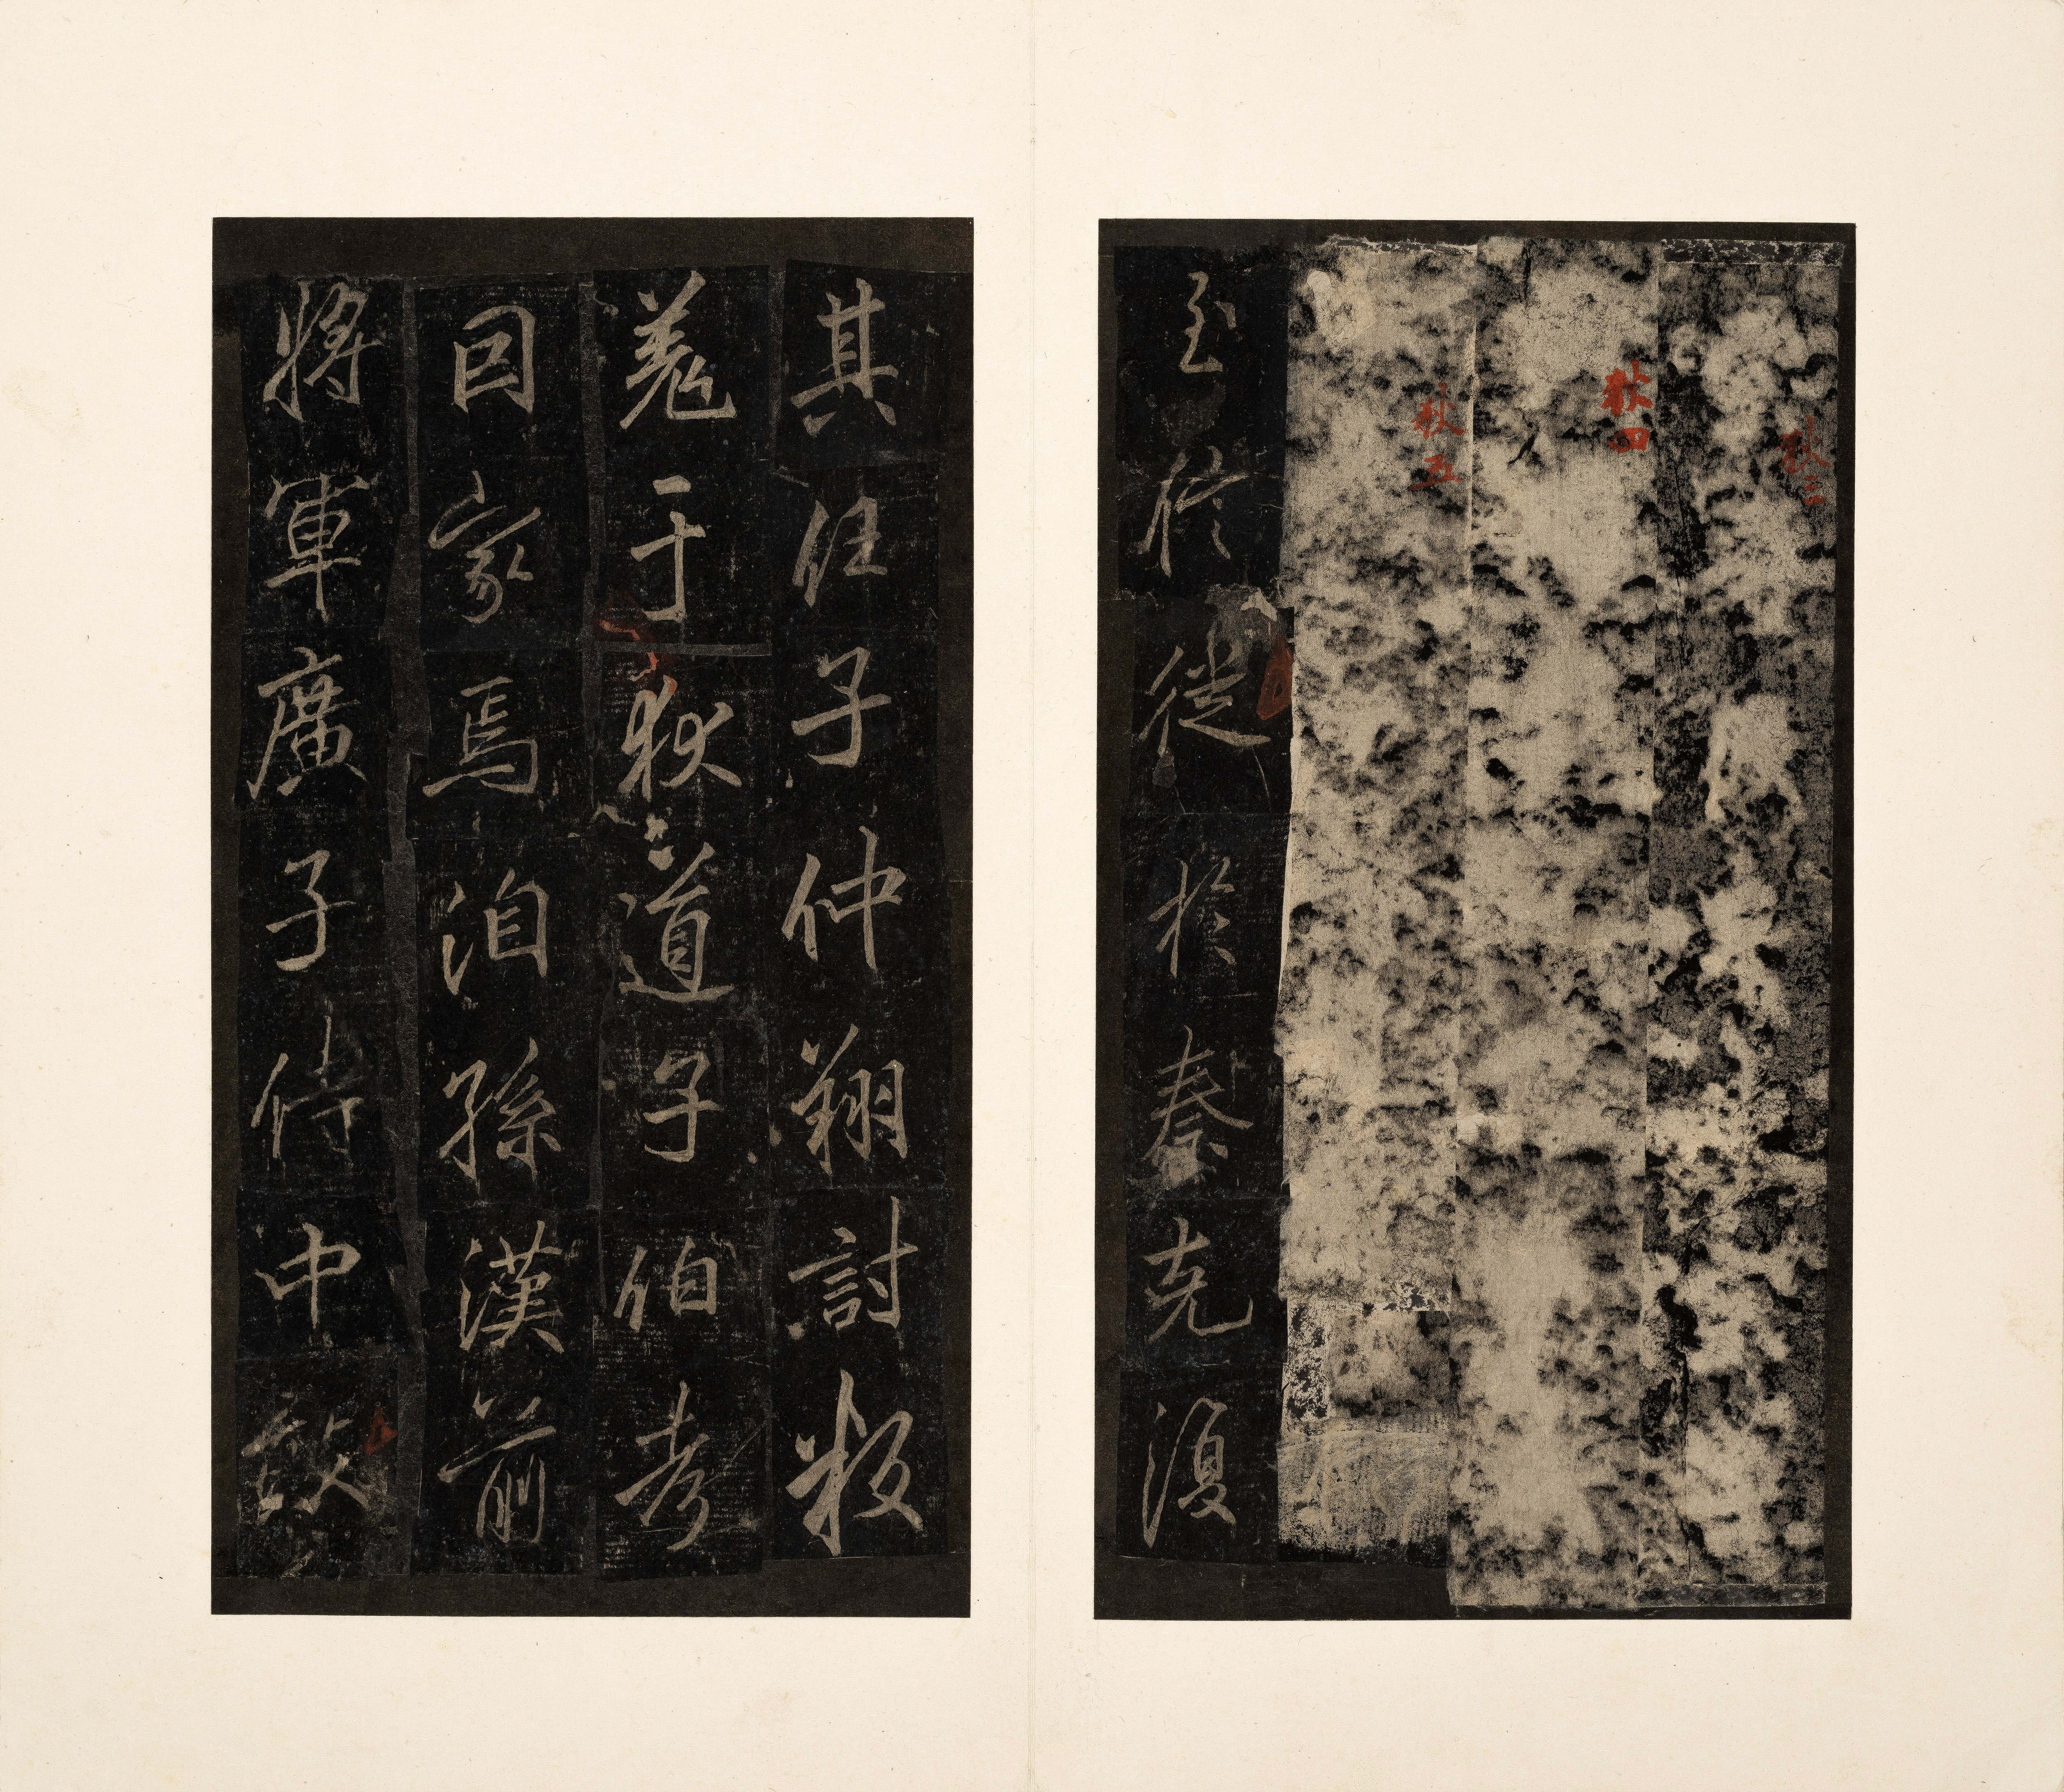 狄三
狄四
狄五
至於徙於秦克復
其任子仲翔討叛
羌于狄道子伯考
因家焉洎孫漢前
將軍廣子侍中敢